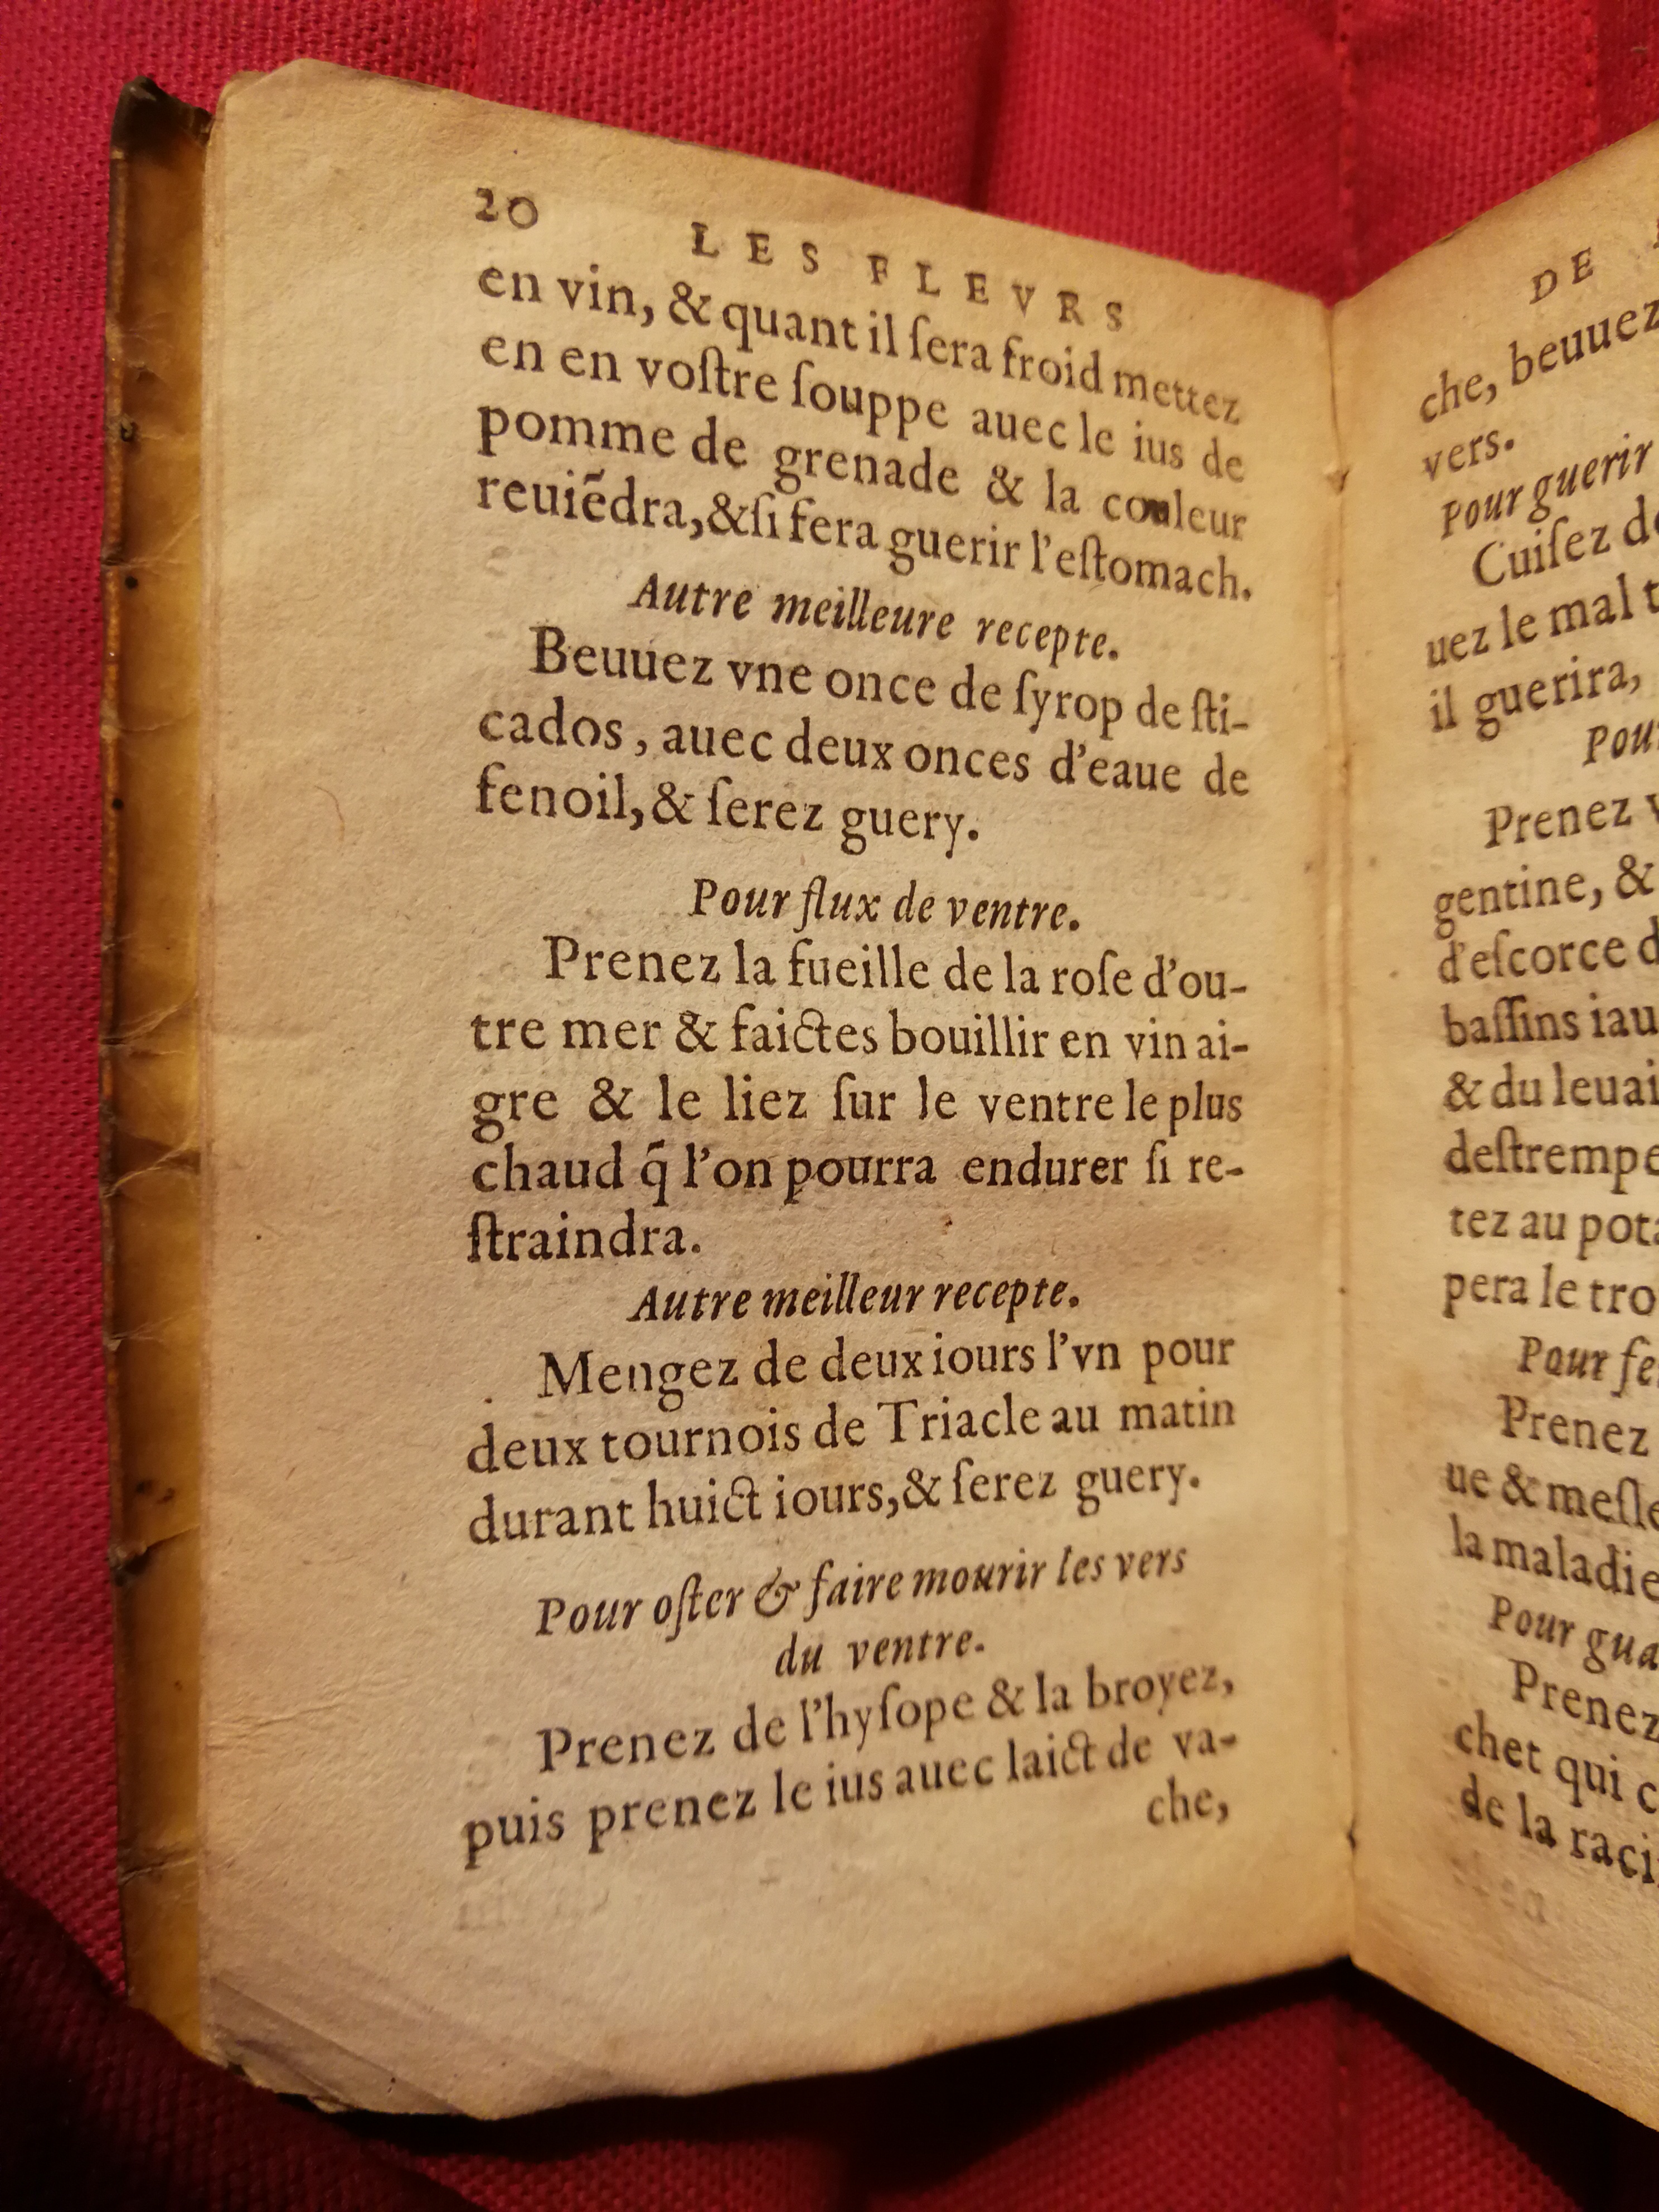 20 LES FLEVRS
en vin, & quant il ſera froid mettez
en en voſtre ſouppe auec le ius de
pomme de grenade & la couleur
reuiẽdra,&ſi fera guerir l'eſtomach.
Autre meilleure recepte.
Beuuez vne once de ſyrop de ſti-
cados, auec deux onces d'eaue de
fenoil,& ſerez guery.
Pour flux de ventre.
Prenez la fueille de la roſe d'ou-
tre mer & faictes bouillir en vin ai-
gre & le liez ſur le ventre le plus
chaud q̃ l'on pourra endurer ſi re-
ſtraindra.
Autre meilleur recepte.
Mengez de deux iours l'vn pour
deux tournois de Triacle au matin
durant huict iours,& ſerez guery.
Pour oſter & faire mourir les vers
du ventre.
Prenez de l'hyſope & la broyez,
puis prenez le ius auec laict de va-
che,
DE
che, beuuez
vers.
Pour guerir
Cuiſez de
uez le mal t
il guerira,
Pour
Prenez v
gentine, &
d'eſcorce d
baſſins iau
& du leuai
deſtrempe
tez au pota
pera le tro
Pour fe
Prenez
ue & meſle
la maladie
Pour gua
Prenez
chet qui c
de la raci